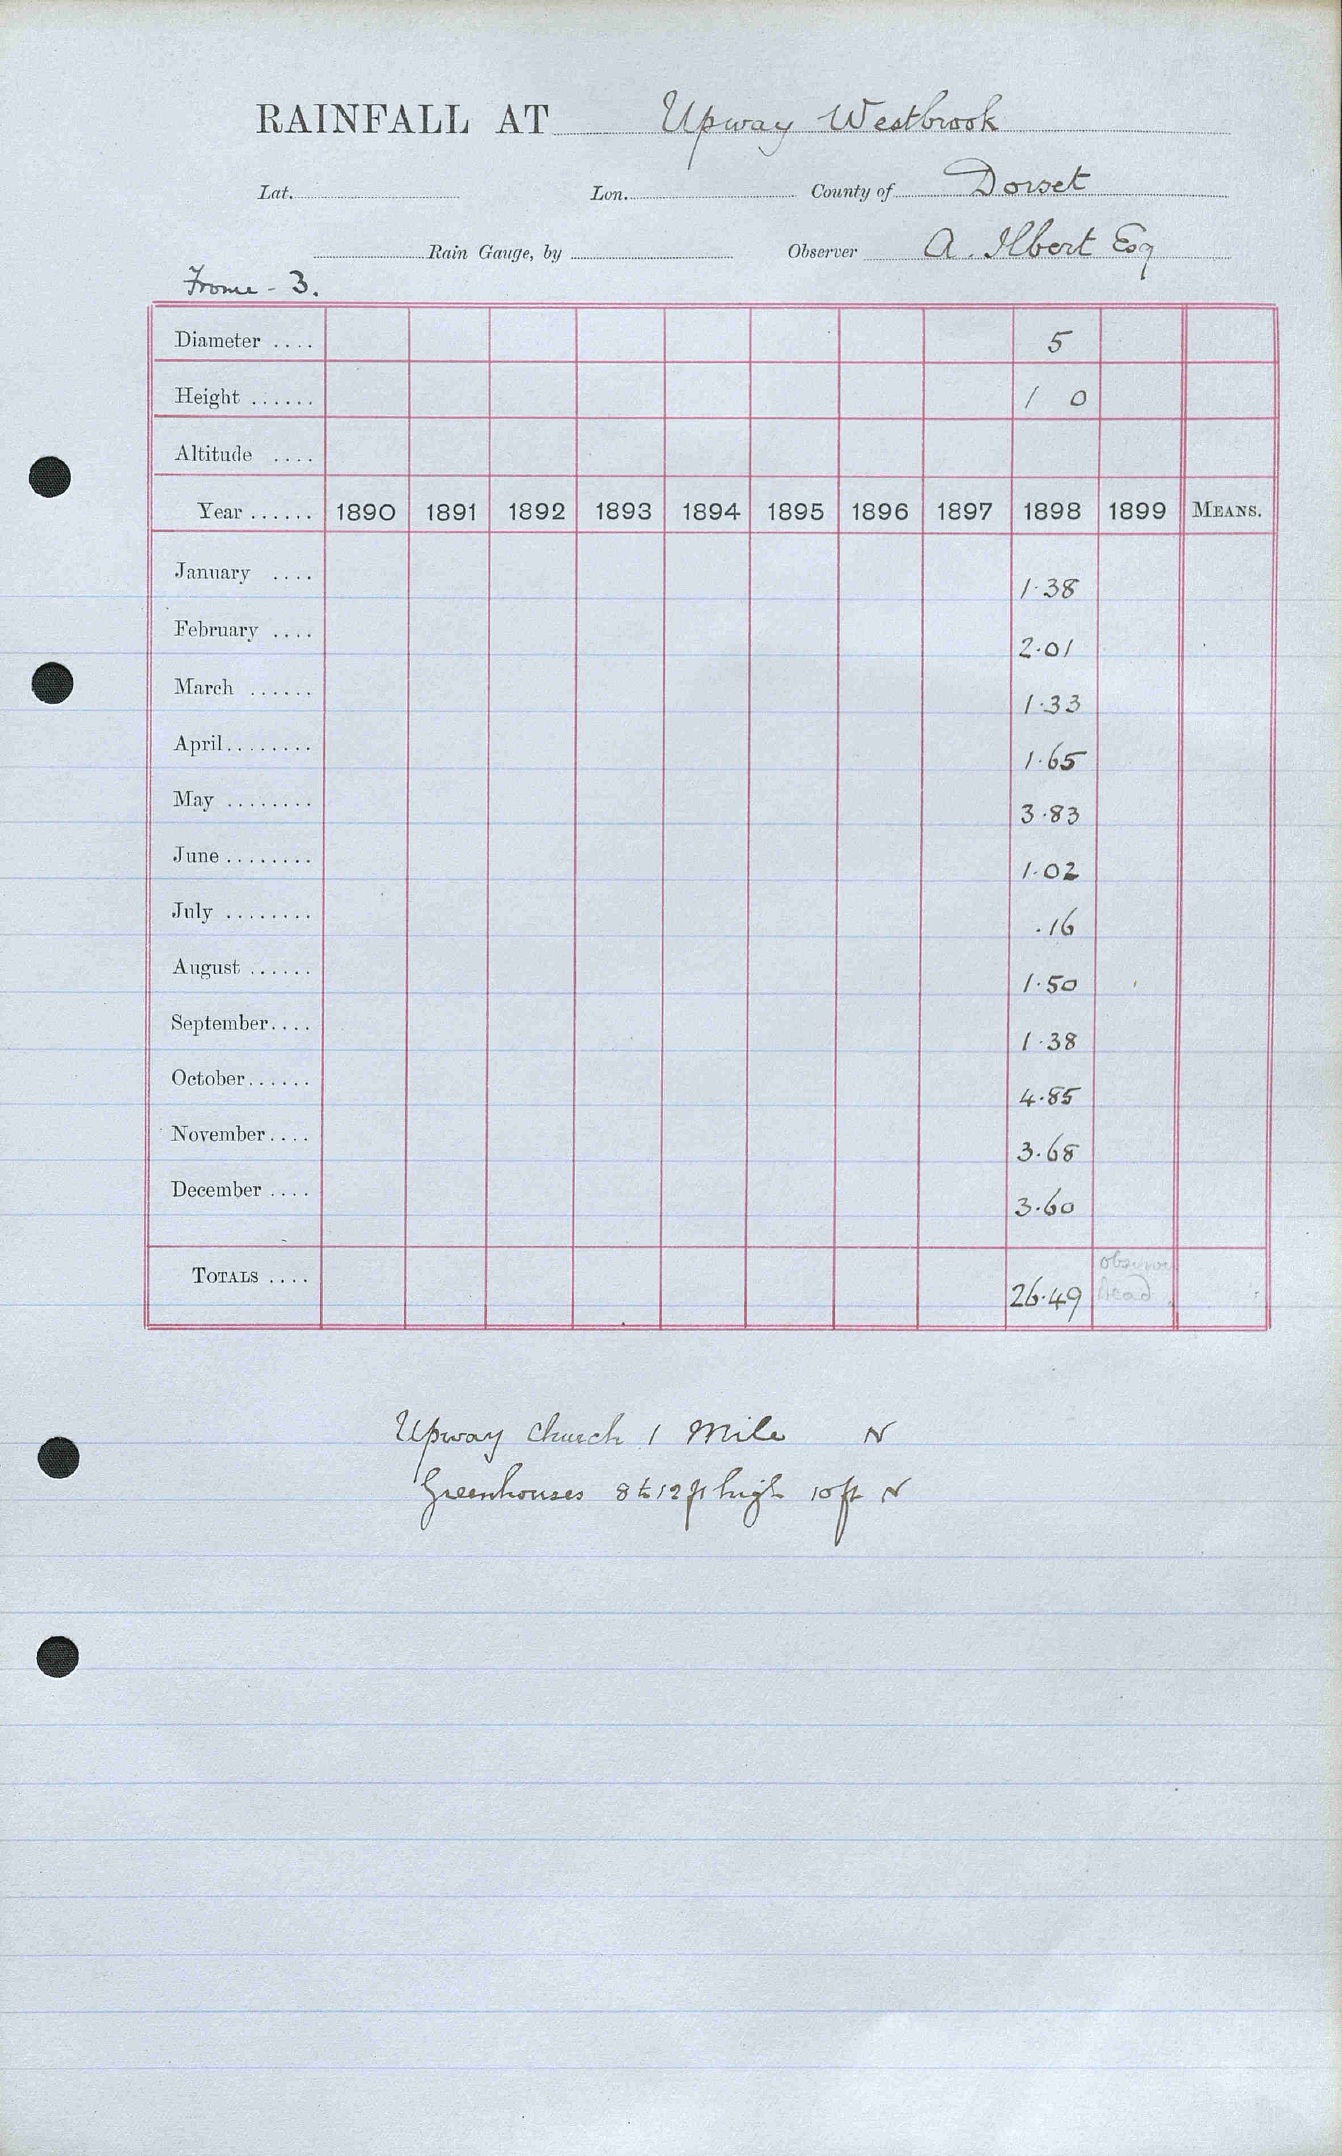 RAINFALL AT Upway Westbrook
Lat. Lon. County of Dorset
Rain Gauge, by Observer A. Ilbert Esq
Frome - 3.
Diameter .... 5
Height ...... 1 0
Altitude ....
Year ...... 1890 1891 1892 1893 1894 1895 1896 1897 1898 1899 MEANS.
January .... 1.38
February .... 2.01
March ...... 1.33
April ........ 1.65
May ........ 3.83
June ........ 1.02
July ........ .16
August ...... 1.50
September .... 1.38
October ...... 4.85
November .... 3.68
December .... 3.60
observer
TOTALS .... 26.49 dead
Upway Church 1 Mile N
Greenhouses 8 to 12 ft high 10 ft N